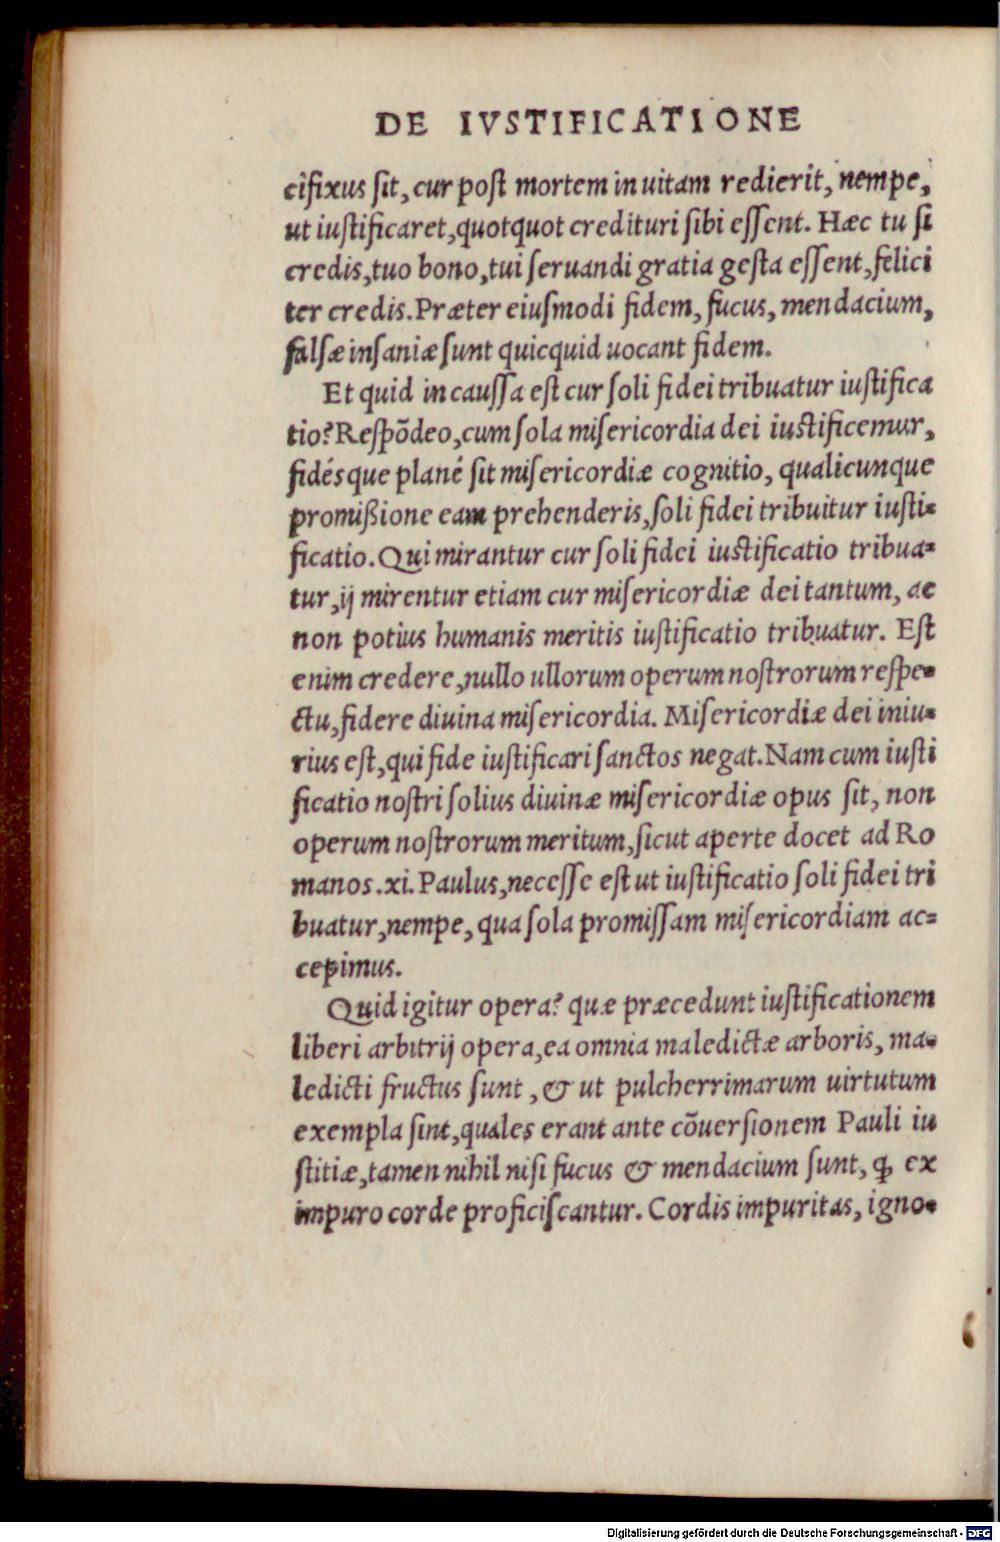 DE IVSTIFICATIONE
cifixus ſit, cur poſt mortem in uitam redierit, nempe,
ut iuſtificaret, quotquot credituri ſibi eſſent. Hæc tu ſi
credis, tuo bono, tui ſeruandi gratia geſta eſſent, felici
ter credis. Præter eiuſmodi fidem, fucus, mendacium,
falſæ inſaniæ ſunt quicquid uocant fidem.
Et quid in cauſſa eſt cur ſoli fidei tribuatur iuſtifica
tio? Reſpõdeo, cum ſola miſericordia dei iuſtificemur,
fidésque plané ſit miſericordiæ cognitio, qualicunque
promißione eam prehenderis, ſoli fidei tribuitur iuſti-
ficatio. Qui mirantur cur ſoli fidei iuſtificatio tribua-
tur, ij mirentur etiam cur miſericordiæ dei tantum, ac
non potius humanis meritis iuſtificatio tribuatur. Eſt
enim credere, nullo ullorum operum noſtrorum reſpe-
ctu, fidere diuina miſericordia. Miſericordiæ dei iniu-
rius eſt, qui fide iuſtificari ſanctos negat. Nam cum iuſti
ficatio noſtri ſolius diuinæ miſericordiæ opus ſit, non
operum noſtrorum meritum, ſicut aperte docet ad Ro
manos .xi. Paulus, neceſſe eſt ut iuſtificatio ſoli fidei tri
buatur, nempe, qua ſola promiſſam miſericordiam ac-
cepimus.
Quid igitur opera? quæ præcedunt iuſtificationem
liberi arbitrij opera, ea omnia maledictæ arboris, ma-
ledicti fructus ſunt, & ut pulcherrimarum uirtutum
exempla ſint, quales erant ante cõuerſionem Pauli iu
ſtitiæ, tamen nihil niſi fucus & mendacium ſunt, ꝙ ex
impuro corde proficiſcantur. Cordis impuritas, igno-
Digitalisierung gefördert durch die Deutsche Forschungsgemeinschaft - DFG